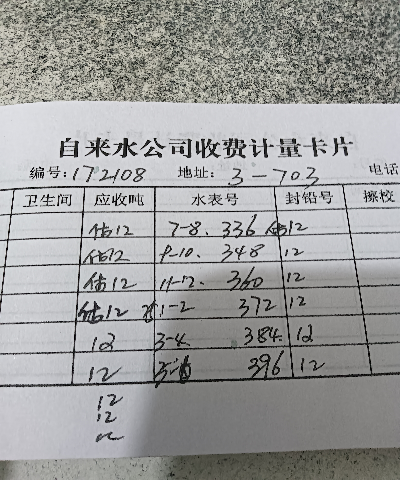 自来水公司收费计量卡片
编号:172108 地址: 3-703 电话
卫生间 应收吨 水表号 封铅号 擦校
估12 7-8. 336 估12
估12 9-10. 348 12
估12 11-12. 360 12
估12 1-2 372 12
12 3-4. 384. 12
12 396 12
12
12